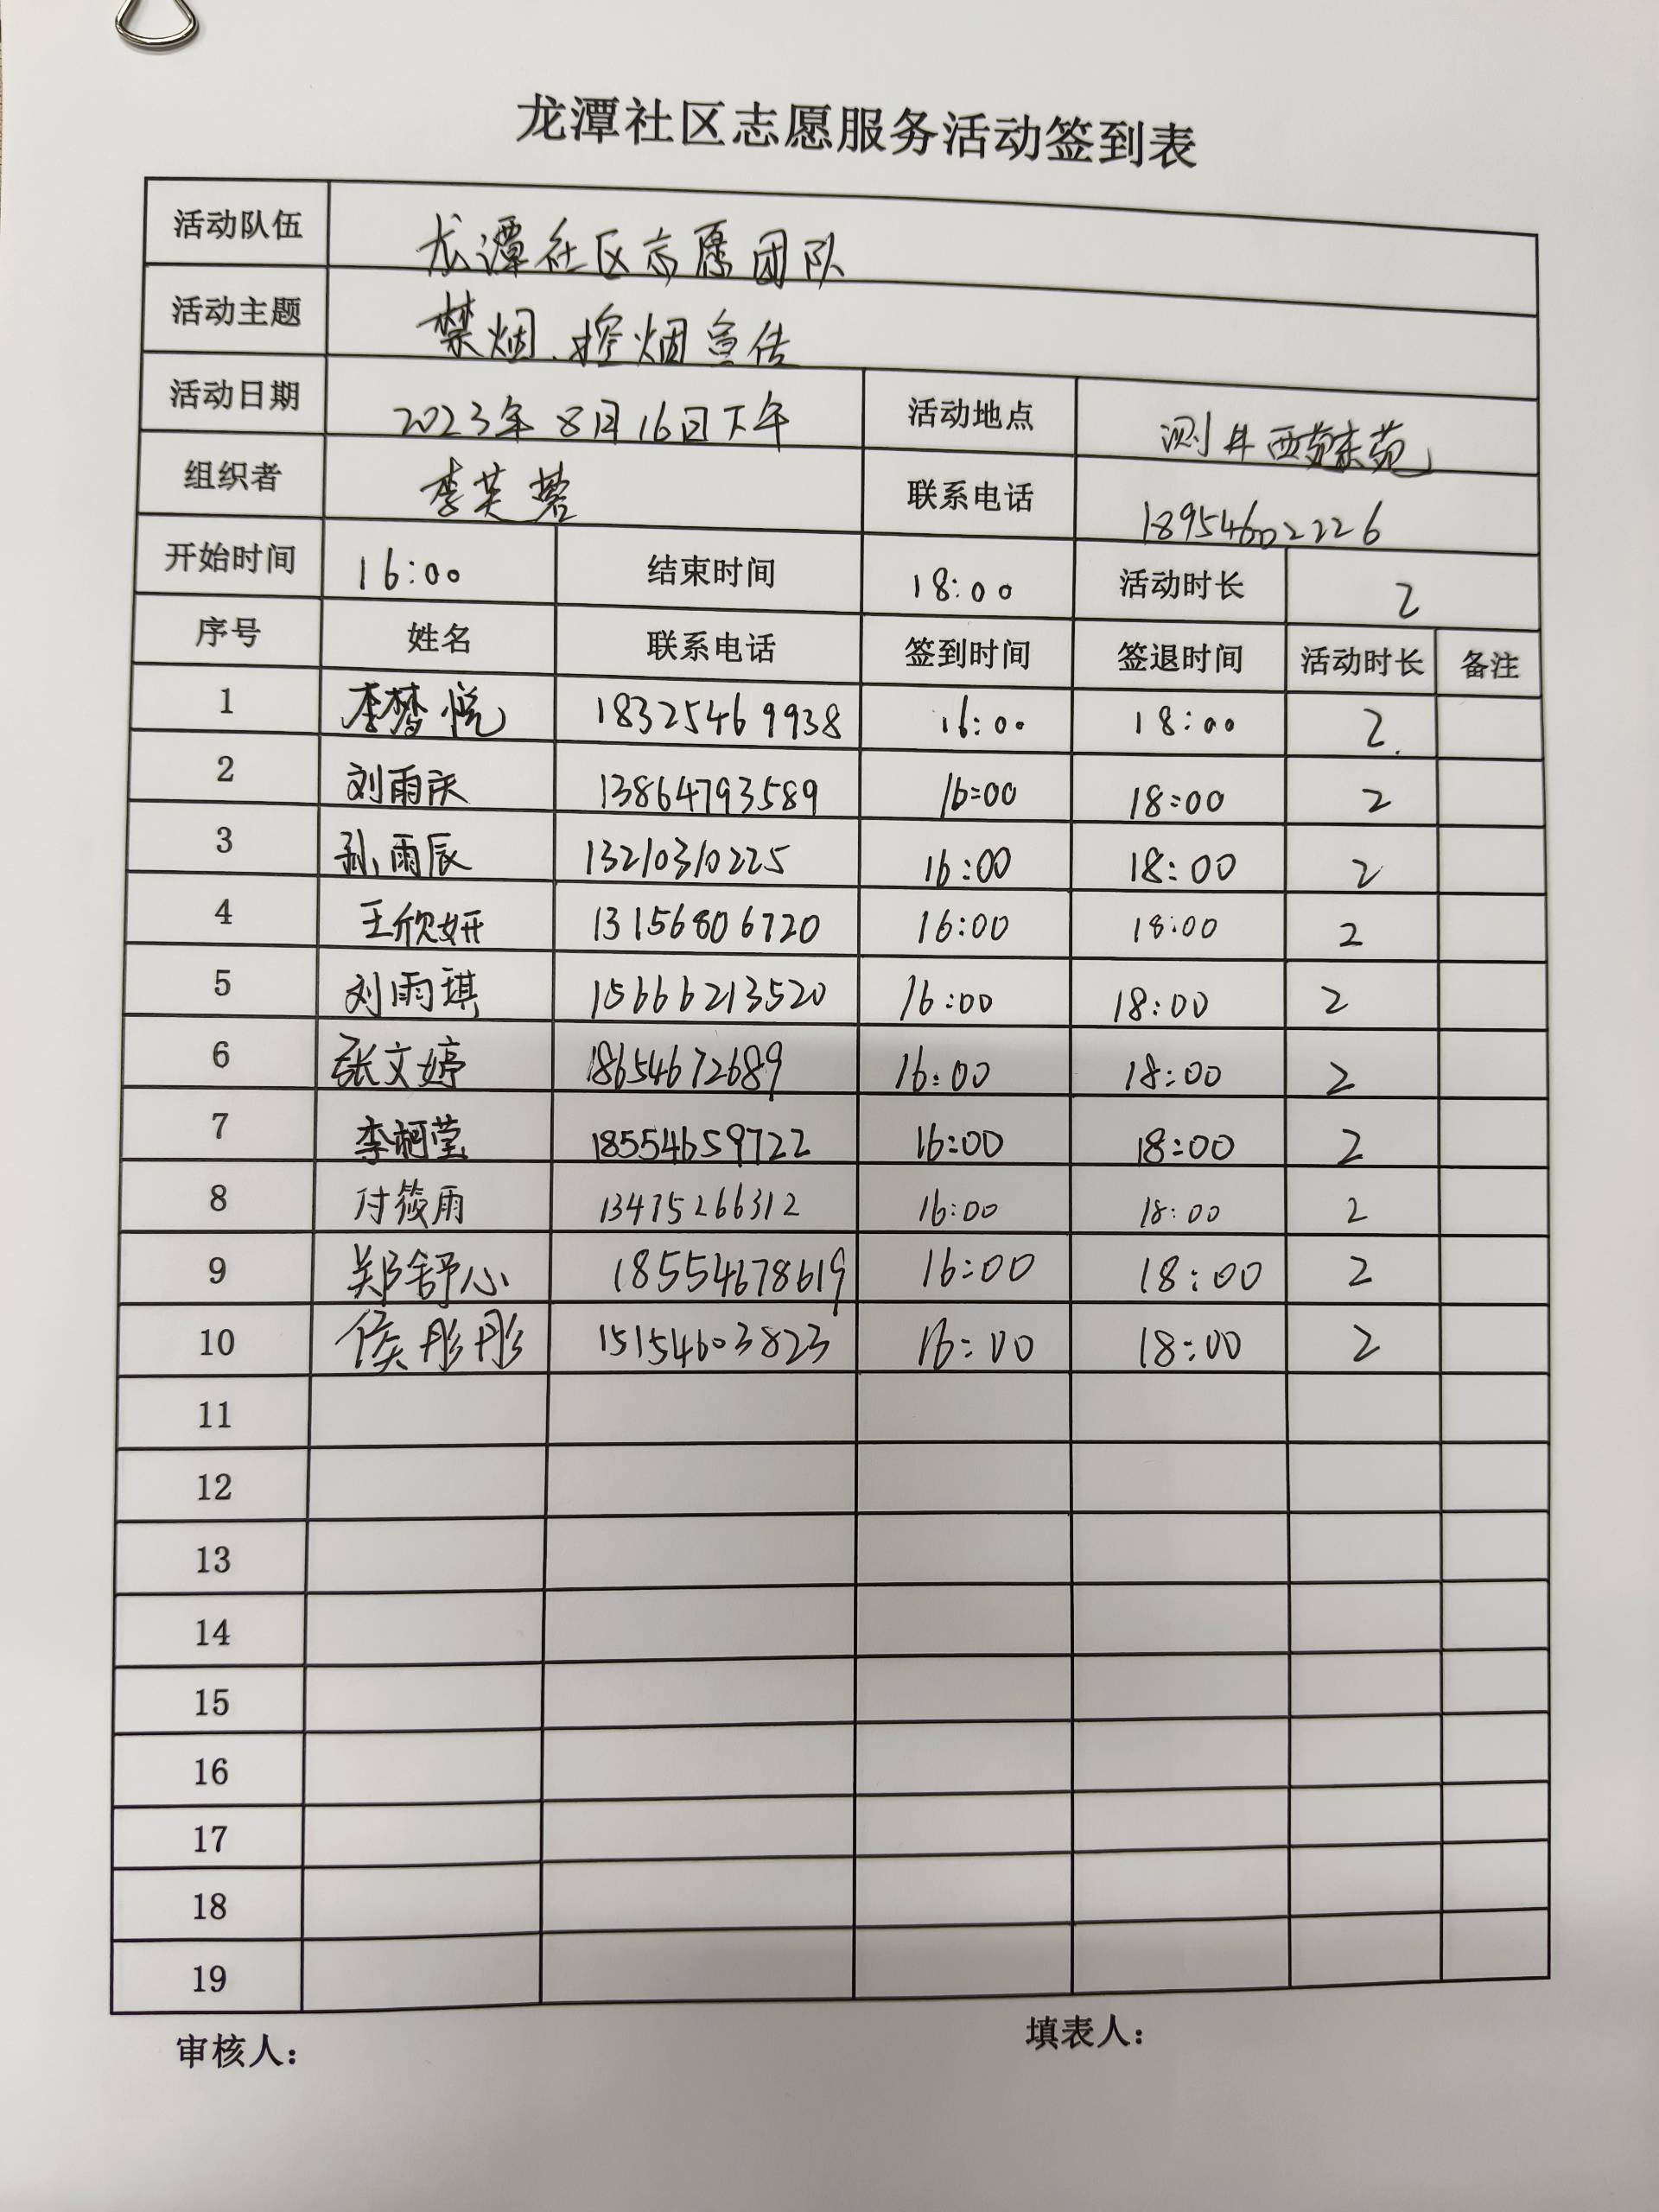 龙潭社区志愿服务活动签到表
活动队伍 龙潭社区志愿团队
活动主题 禁烟、控烟宣传
活动日期 2023年8月16日下午 活动地点 测井西苑东苑
组织者 李芙蓉 联系电话 18954602226
开始时间 16:00 结束时间 18:00 活动时长 2
序号 姓名 联系电话 签到时间 签退时间 活动时长 备注
1 李梦悦 18325469938 16:00 18:00 2
2 刘雨庆 13864793589 16:00 18:00 2
3 孙雨辰 13210310225 16:00 18:00 2
4 王欣妍 13156806720 16:00 18:00 2
5 刘雨琪 15666213520 16:00 18:00 2
6 张文婷 18654672689 16:00 18:00 2
7 李柯莹 18554659722 16:00 18:00 2
8 付筱雨 13475266312 16:00 18:00 2
9 郑舒心 18554678619 16:00 18:00 2
10 侯彤彤 15154603823 16:00 18:00 2
11
12
13
14
15
16
17
18
19
审核人： 填表人：